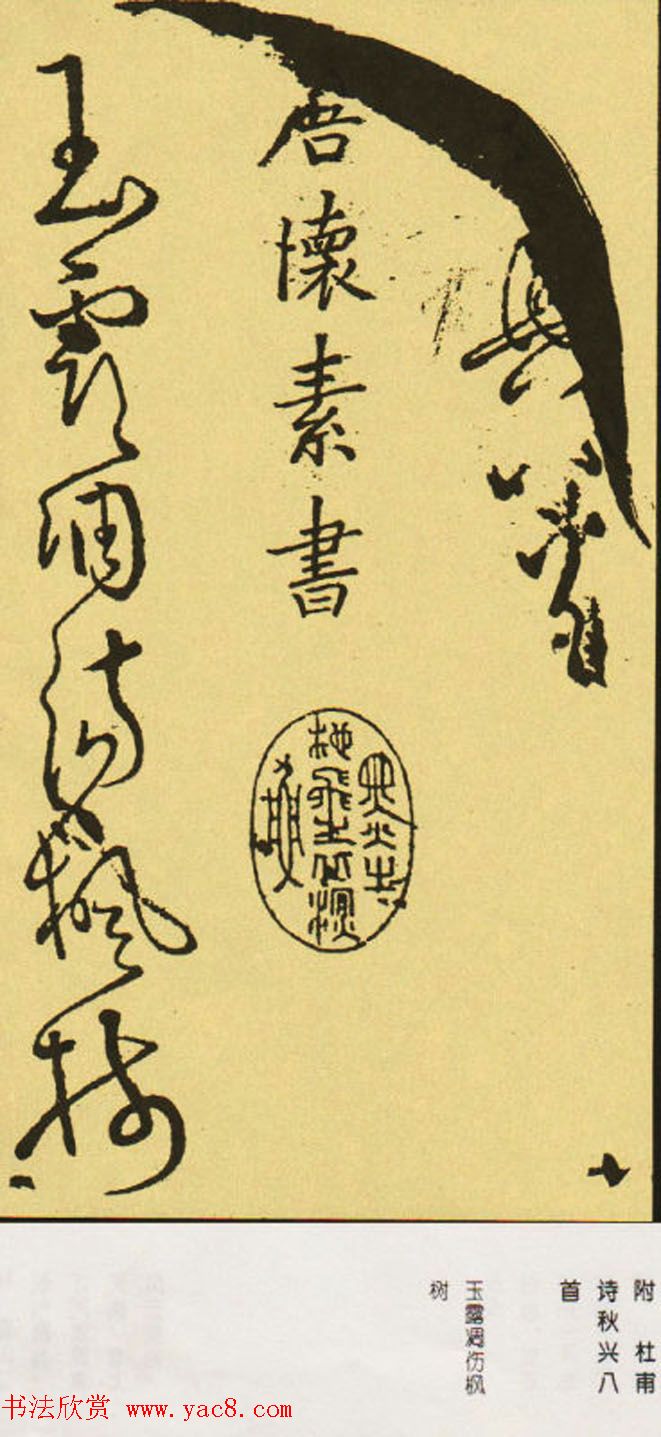 興八首
唐懷素書
玉露凋傷楓樹
附 杜甫
诗秋兴八
首
玉露凋伤枫
树
书法欣赏 www.yac8.com